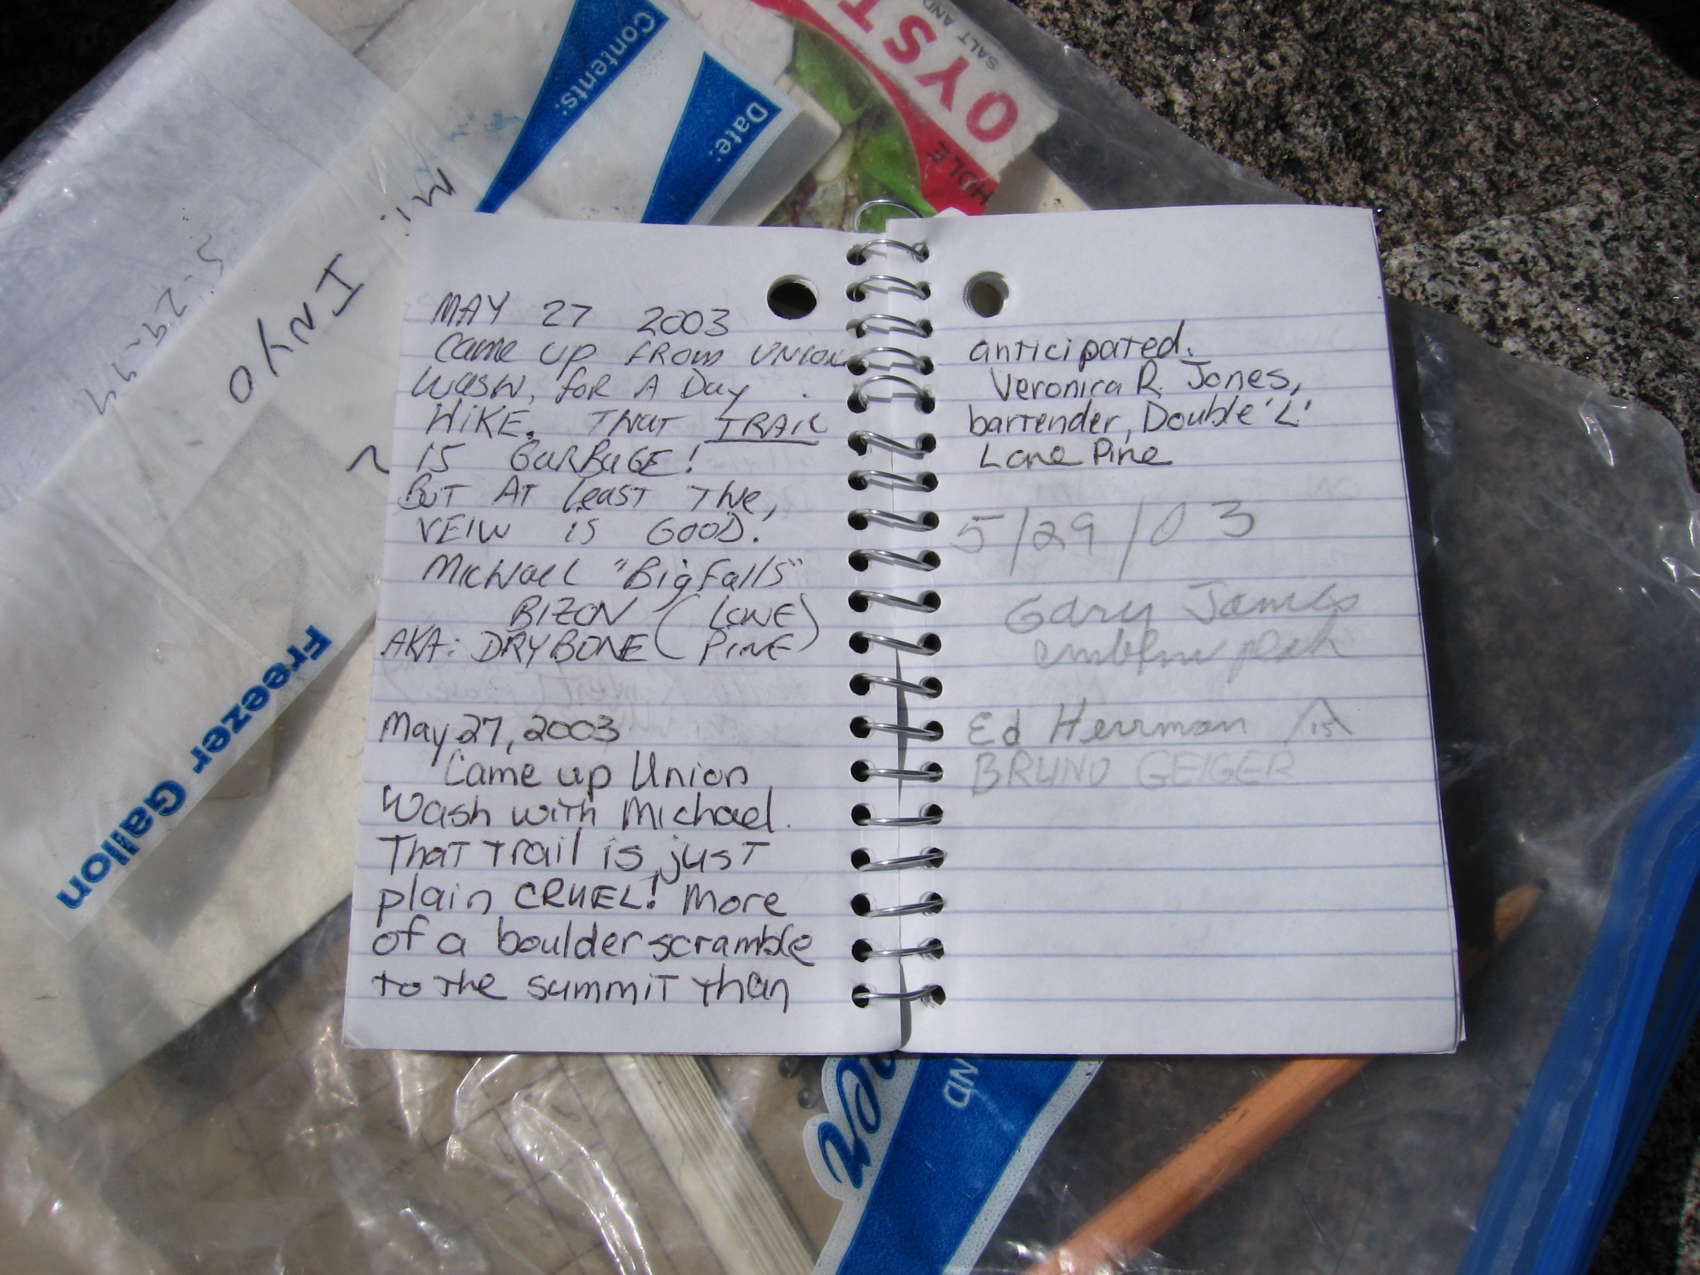 MAY 27 2003
Came up FROM UNION
WASH, for A Day
HiKE. THAT TRAIL
is GARBAGE!
BUT AT least The,
VEIW is GOOD.
Michael "BigFalls"
BIZON (LONE
AKA: DRYBONE PINE)
May 27, 2003
Came up Union
Wash with Michael.
That trail is just
plain CRUEL! More
of a boulder scramble
to the summit than
anticipated.
Veronica R. Jones,
bartender, Double 'L'
Lone Pine
5/29/03
Gary James
emblem peak
Ed Herrman 15
BRUNO GEIGER
Contents:
Date:
OYST
SALT AND
Mt. INYO
5-29-94
Freezer Gallon